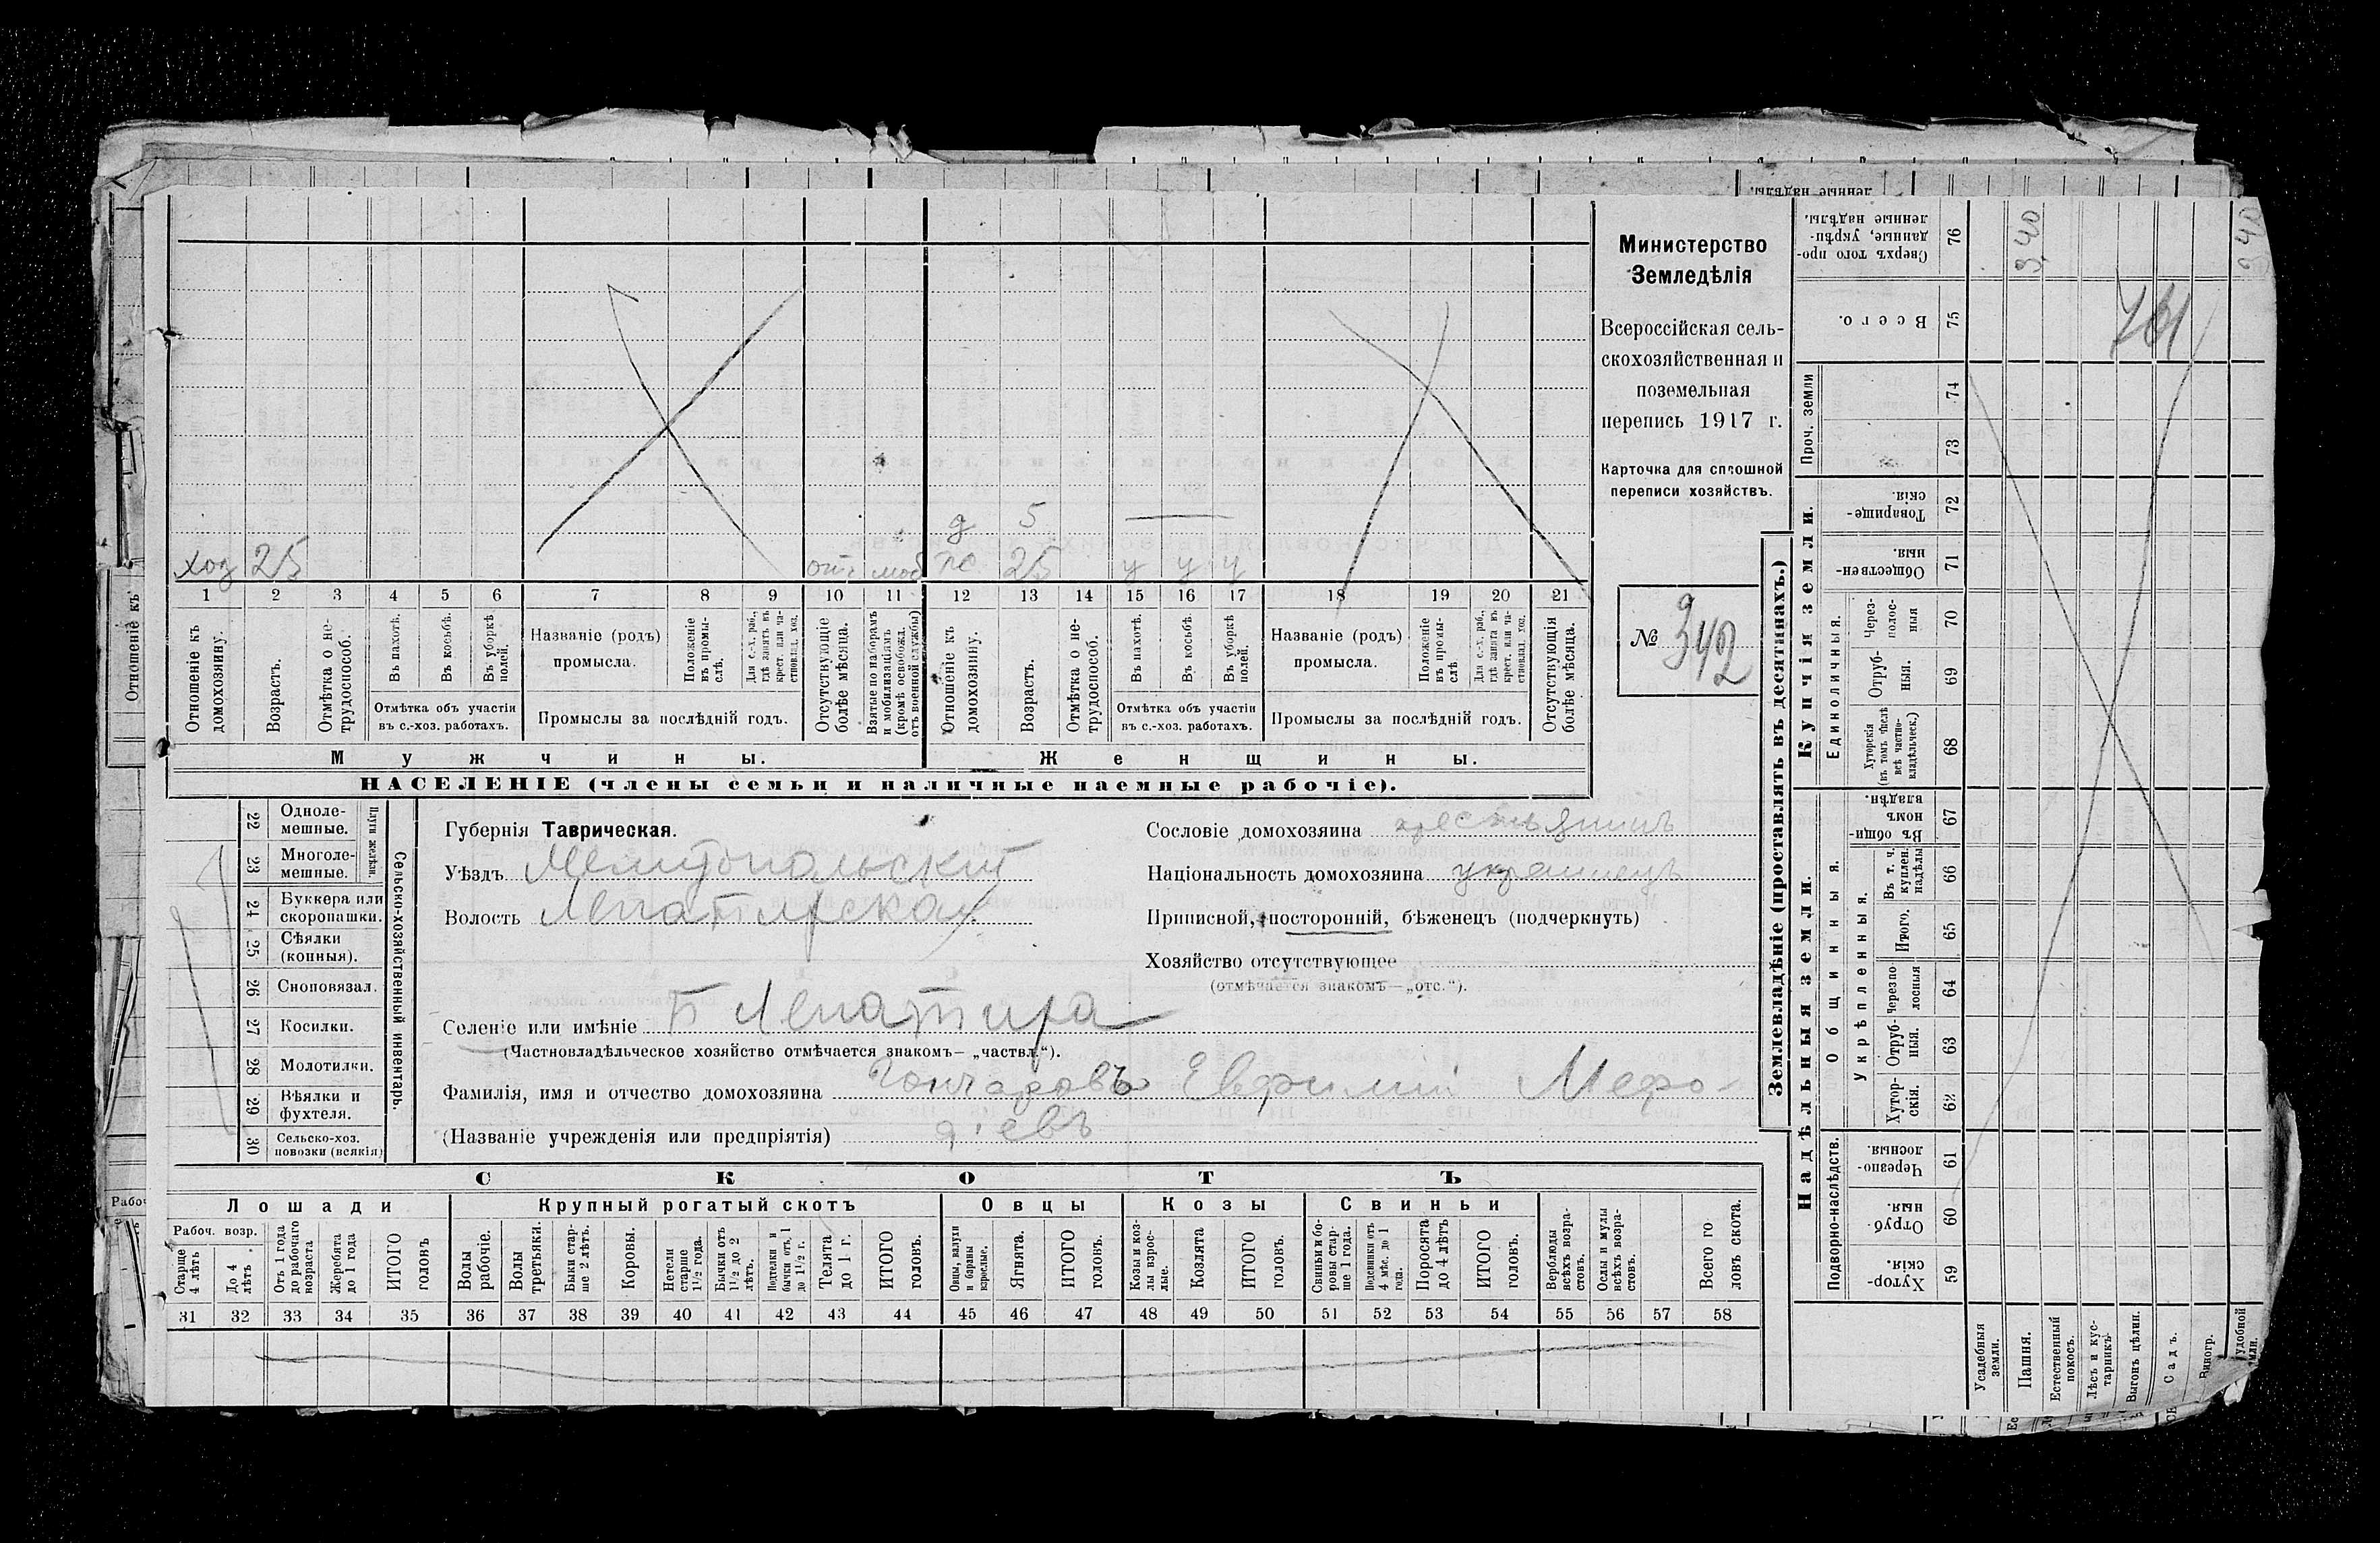 Министерство
Земледѣлія
Всероссійская сель-
скохозяйственная и
поземельная
перепись 1917 г.
Карточка для сплошной
переписи хозяйствъ.
№ 342
д 5
хоз 25 отс моб 25 у у у
1 2 3 4 5 6 7 8 9 10 11 12 13 14 15 16 17 18 19 20 21
Отношеніе къ домохозяину.
Возрастъ.
Отмѣтка о не-трудоспособ.
Въ пахотѣ.
Въ косьбѣ.
Въ уборкѣ полей.
Отмѣтка объ участіи
въ с.-хоз. работахъ.
Названіе (родъ)
промысла.
Положеніе въ промы-слѣ.
Для с.-х. раб., гдѣ занятъ въ крест. или ча-стновлад. хоз.
Промыслы за послѣдній годъ.
Отсутствующіе болѣе мѣсяца.
Взятые по наборамъ и мобилизаціямъ (кромѣ освобожд. отъ военной службы)
Отношеніе къ домохозяину.
Возрастъ.
Отмѣтка о не-трудоспособ.
Въ пахотѣ.
Въ косьбѣ.
Въ уборкѣ полей.
Отмѣтка объ участіи
въ с.-хоз. работахъ.
Названіе (родъ)
промысла.
Положеніе въ промы-слѣ
Для с.-х. раб., гдѣ занята въ крест. или ча-стновлад. хоз.
Промыслы за послѣдній годъ.
Отсутствующія болѣе мѣсяца.
Мужчины.
Женщины.
НАСЕЛЕНІЕ (члены семьи и наличные наемные рабочіе).
22 Одноле-мешные.
23 Многоле-мешные.
Плуги желѣзн.
24 Буккера или скоропашки.
25 Сѣялки (конныя).
26 Сноповязал.
27 Косилки.
28 Молотилки.
29 Вѣялки и фухтеля.
30 Сельско-хоз. повозки (всякія)
Сельско-хозяйственный инвентарь.
Губернія Таврическая.
Уѣздъ Мелитопольскій
Волость Лепатихская
Сословіе домохозяина крестьянинъ
Національность домохозяина украинецъ
Приписной, посторонній, бѣженецъ (подчеркнуть)
Хозяйство отсутствующее
(отмѣчается знакомъ—„отс.“).
Селеніе или имѣніе Б Лепатиха
(Частновладѣльческое хозяйство отмѣчается знакомъ— „частвл.“).
Фамилія, имя и отчество домохозяина Гончаровъ Евфимій Мефо-
(Названіе учрежденія или предпріятія) діевъ
СКОТЪ
Лошади
Крупный рогатый скотъ
Овцы
Козы
Свиньи
Рабоч. возр.
Старше 4 лѣтъ
До 4 лѣтъ.
Отъ 1 года до рабочаго возраста
Жеребята до 1 года
ИТОГО головъ
Волы рабочіе.
Волы третьяки.
Быки стар-ше 2 лѣтъ.
Коровы.
Нетели старше 1 1/2 года.
Бычки отъ 1 1/2 до 2 лѣтъ.
Подтелки и бычки отъ 1 до 1 1/2 г.
Телята до 1 г.
ИТОГО головъ.
Овцы, валухи и бараны взрослые.
Ягнята.
ИТОГО головъ.
Козы и коз-лы взрос-лые.
Козлята
ИТОГО головъ.
Свиньи и бо-ровы стар-ше 1 года.
Подсвинки отъ 4 мѣс. до 1 года.
Поросята до 4 лѣтъ
ИТОГО головъ.
Верблюды всѣхъ возра-стовъ.
Ослы и мулы всѣхъ возра-стовъ.
Всего го ловъ скота.
31 32 33 34 35 36 37 38 39 40 41 42 43 44 45 46 47 48 49 50 51 52 53 54 55 56 57 58
Землевладѣніе (проставлять въ десятинахъ.)
Надѣльныя земли.
Купчія земли.
Проч. земли
Подворно-наслѣдств.
Общинныя.
Укрѣпленныя.
Единоличныя.
Сверхъ того про-данные, укрѣп-ленные надѣлы. 76
Всего. 75
74
73
Товарище-скія. 72
Обществен-ныя. 71
Через-полос-ныя 70
Отруб-ныя. 69
Хуторскія (въ томъ числѣ всѣ частно-владѣльческ.) 68
Въ общи-номъ владѣн. 67
Въ т. ч. куплен. надѣлы 66
Итого. 65
Черезпо лосныя 64
Отруб-ныя. 63
Хутор-скія. 62
Черезпо-лосныя. 61
Отруб-ныя. 60
Хутор-скія. 59
Усадебныя земли.
Пашня.
Естественный покосъ.
Лѣсъ и кус-тарникъ
Выгонъ цѣлин.
Садъ.
Виногр.
3,40
761